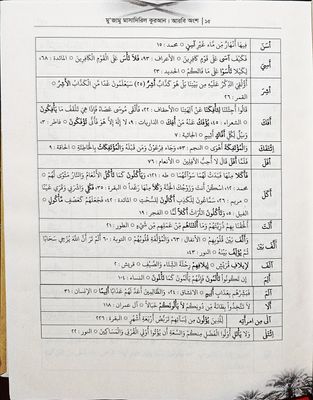 মু'জামু মাসাদিরিল কুরআন। আরবি অংশ | ১৫
أَسَنَ فِيهَا أَنْهَارٌ مِّن مَّاءٍ غَيْرِ آسِنٍ ۞ محمد : ١٥
أَسِيَ فَكَيْفَ آسَى عَلَى قَوْمٍ كَافِرِينَ ۞ الأعراف : ٩٣، فَلَا تَأْسَ عَلَى الْقَوْمِ الْكَافِرِينَ ۞ المائدة : ٦٨،
لِكَيْلَا تَأْسَوْا عَلَى مَا فَاتَكُمْ ۞ الحديد : ٢٣
أَشِرَ أَؤُلْقِيَ الذِّكْرُ عَلَيْهِ مِن بَيْنِنَا بَلْ هُوَ كَذَّابٌ أَشِرٌ (٢٥) سَيَعْلَمُونَ غَدًا مَّنِ الْكَذَّابُ الْأَشِرُ ۞
القمر : ٢٦
أَفَكَ قَالُوا أَجِئْتَنَا لِتَأْفِكَنَا عَنْ آلِهَتِنَا ۞ الأحقاف : ٢٢، فَأَلْقَى مُوسَى عَصَاهُ فَإِذَا هِيَ تَلْقَفُ مَا يَأْفِكُونَ
۞ الشعراء : ٤٥، يُؤْفَكُ عَنْهُ مَنْ أُفِكَ ۞ الذاريات : ٩، لَا إِلَهَ إِلَّا هُوَ فَأَنَّى تُؤْفَكُونَ ۞ فاطر : ٣،
وَيْلٌ لِّكُلِّ أَفَّاكٍ أَثِيمٍ ۞ الجاثية : ٧
اِئْتَفَكَ وَالْمُؤْتَفِكَةَ أَهْوَى ۞ النجم : ٥٣، وَجَاءَ فِرْعَوْنُ وَمَن قَبْلَهُ وَالْمُؤْتَفِكَاتُ بِالْخَاطِئَةِ ۞ الحاقة : ٩
أَفَلَ فَلَمَّا أَفَلَ قَالَ لَا أُحِبُّ الْآفِلِينَ ۞ الأنعام : ٧٦
أَكَلَ فَأَكَلَا مِنْهَا فَبَدَتْ لَهُمَا سَوْآتُهُمَا ۞ طه : ١٢١، وَيَأْكُلُونَ كَمَا تَأْكُلُ الْأَنْعَامُ وَالنَّارُ مَثْوًى لَّهُمْ ۞
محمد : ١٢، اسْكُنْ أَنتَ وَزَوْجُكَ الْجَنَّةَ وَكُلَا مِنْهَا رَغَدًا ۞ البقرة : ٣٥، فَكُلِي وَاشْرَبِي وَقَرِّي عَيْنًا
۞ مريم : ٢٦، سَمَّاعُونَ لِلْكَذِبِ أَكَّالُونَ لِلسُّحْتِ ۞ المائدة : ٤٢، فَجَعَلَهُمْ كَعَصْفٍ مَّأْكُولٍ ۞
الفيل : ٥، وَتَأْكُلُونَ التُّرَاثَ أَكْلًا لَّمًّا ۞ الفجر : ١٩
أَلَتَ أَلْحَقْنَا بِهِمْ ذُرِّيَّتَهُمْ وَمَا أَلَتْنَاهُم مِّنْ عَمَلِهِم مِّن شَيْءٍ ۞ الطور : ٢١
أَلَّفَ بَيْنَ وَأَلَّفَ بَيْنَ قُلُوبِهِمْ ۞ الأنفال : ٦٣، وَالْمُؤَلَّفَةِ قُلُوبُهُمْ ۞ التوبة : ٦٠ أَلَمْ تَرَ أَنَّ اللَّهَ يُزْجِي سَحَابًا
ثُمَّ يُؤَلِّفُ بَيْنَهُ ۞ النور : ٤٣
آلَفَ لِإِيلَافِ قُرَيْشٍ ۞ إِيلَافِهِمْ رِحْلَةَ الشِّتَاءِ وَالصَّيْفِ ۞ قريش : ٢
أَلِمَ إِن تَكُونُوا تَأْلَمُونَ فَإِنَّهُمْ يَأْلَمُونَ كَمَا تَأْلَمُونَ ۞ النساء : ١٠٤
فَبَشِّرْهُم بِعَذَابٍ أَلِيمٍ ۞ الانشقاق : ٢٤، وَالظَّالِمِينَ أَعَدَّ لَهُمْ عَذَابًا أَلِيمًا ۞ الإنسان : ٣١
أَلَا لَا تَتَّخِذُوا بِطَانَةً مِّن دُونِكُمْ لَا يَأْلُونَكُمْ خَبَالًا ۞ آل عمران : ١١٨
آلَى مِن امرأتِه لِّلَّذِينَ يُؤْلُونَ مِن نِّسَائِهِمْ تَرَبُّصُ أَرْبَعَةِ أَشْهُرٍ ۞ البقرة : ٢٢٦
اِئْتَلَى وَلَا يَأْتَلِ أُولُو الْفَضْلِ مِنكُمْ وَالسَّعَةِ أَن يُؤْتُوا أُولِي الْقُرْبَى وَالْمَسَاكِينَ ۞ النور : ٢٢